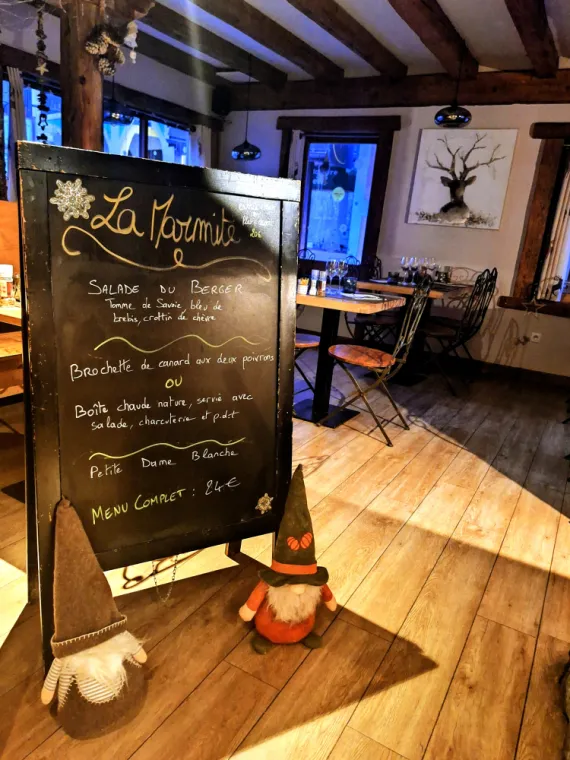 La Marmite
SALADE DU BERGER
Tomme de Savoie, bleu de
brebis, crottin de chèvre
Brochette de canard aux deux poivrons
OU
Boîte chaude nature, servie avec
salade, charcuterie et p.d.t
Petite Dame Blanche
MENU COMPLET : 24€